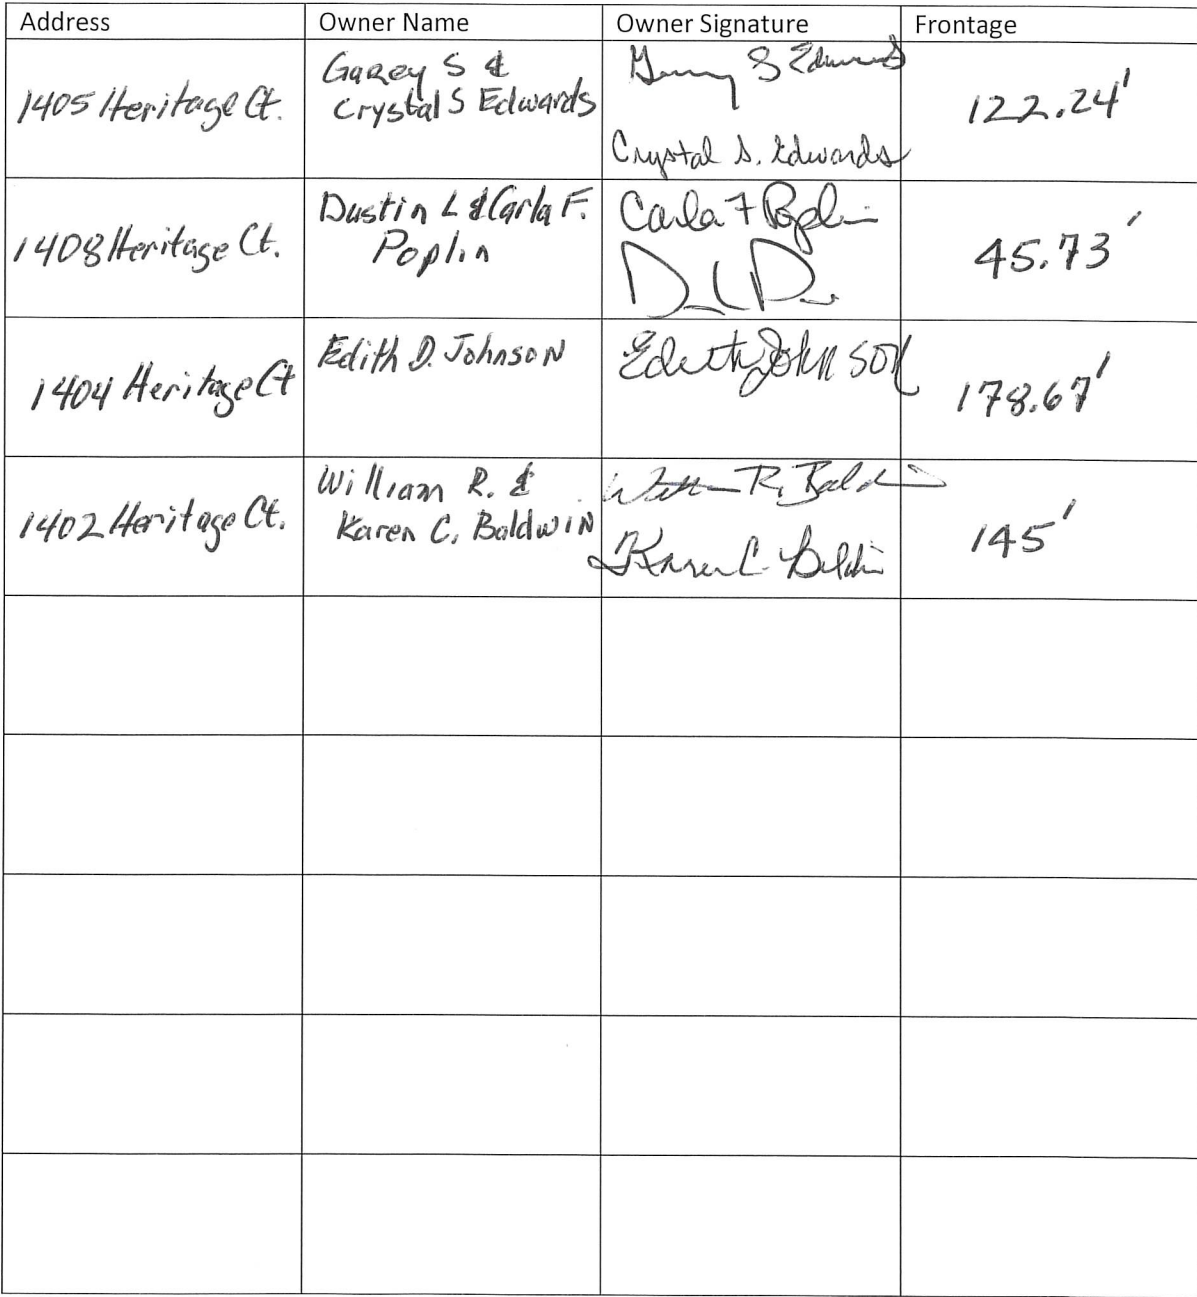 Address Owner Name Owner Signature Frontage
1405 Heritage Ct.
Garey S &
Crystal S Edwards
Garey S Edwards
Crystal S. Edwards
122.24'
1408 Heritage Ct.
Dustin L & Carla F.
Poplin
Carla F Poplin
45.73'
1404 Heritage Ct
Edith D. Johnson
Edith Johnson
178.67'
1402 Heritage Ct.
William R. &
Karen C. Baldwin
William R. Baldwin
Karen C. Baldwin
145'